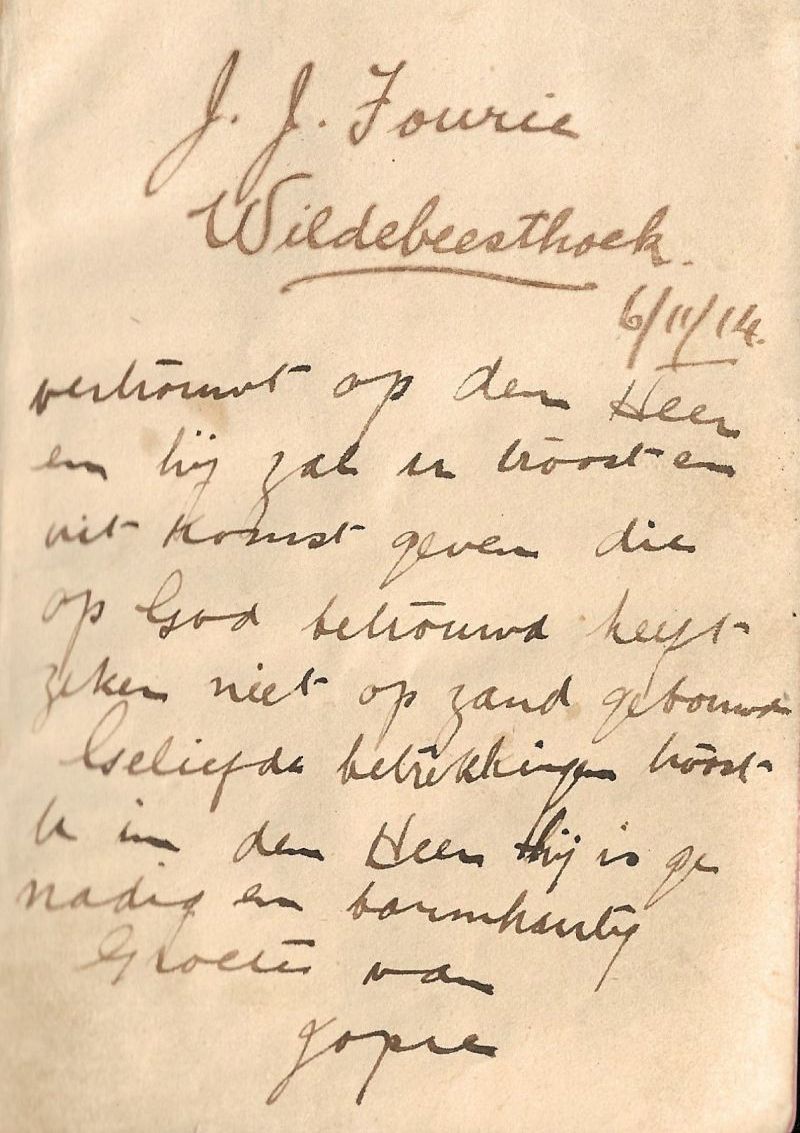 J. J. Fourie
Wildebeesthoek.
6/11/14.
vertrouwt op den Heer
en hij zal u troost en
uit komst geven die
op God betrouwd heeft
zeker niet op zand gebouwd
Geliefde betrekkingen troost
U in den Heer hij is ge
nadig en barmhartig
Groete van
Jopie